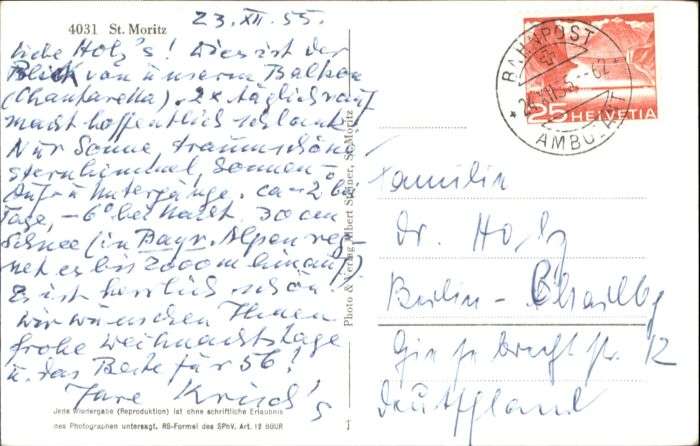 23. XII. 55.
4031 St. Moritz
Liebe Holz's! Dies ist der
Blick von unserm Balkon
(Chantarella). 2x täglich rauf
macht hoffentlich schlank
Nur Sonne, traumschöne
Sternhimmel, Sonnen-
Auf- u Untergänge. ca -2 bei
Tage, -6° bei Nacht. 30 cm
Schnee (in Bayr. Alpen reg-
net es bis 2000 m hinauf)
Es ist herrlich schön!
Wir wünschen Ihnen
frohe Weihnachtstage
u. das Beste für 56!
Ihre Krisch's
Jede Wiedergabe (Reproduktion) ist ohne schriftliche Erlaubnis
des Photographen untersagt. RS-Formel des SPhV, Art. 12 BGUR
Photo & Verlag Albert Steiner, St. Moritz
BAHNPOST
AMBULANT
25 HELVETIA
Familie
Dr. Holz
Berlin-Charlbg
Giesebrechtstr. 12
Deutschland